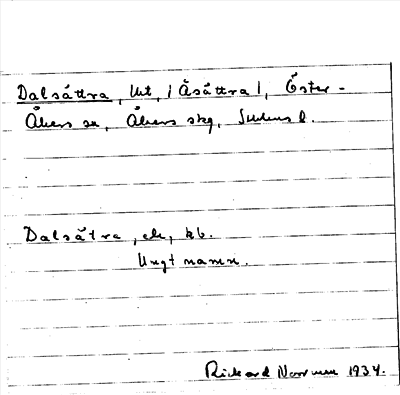 Dalsättra, lht, (Åsättra), Öster-
Åkers sn, Åkers skg, Sthlms l.
Dalsätra, ek, kb.
Ungt namn.
Rickard Norrman 1934.